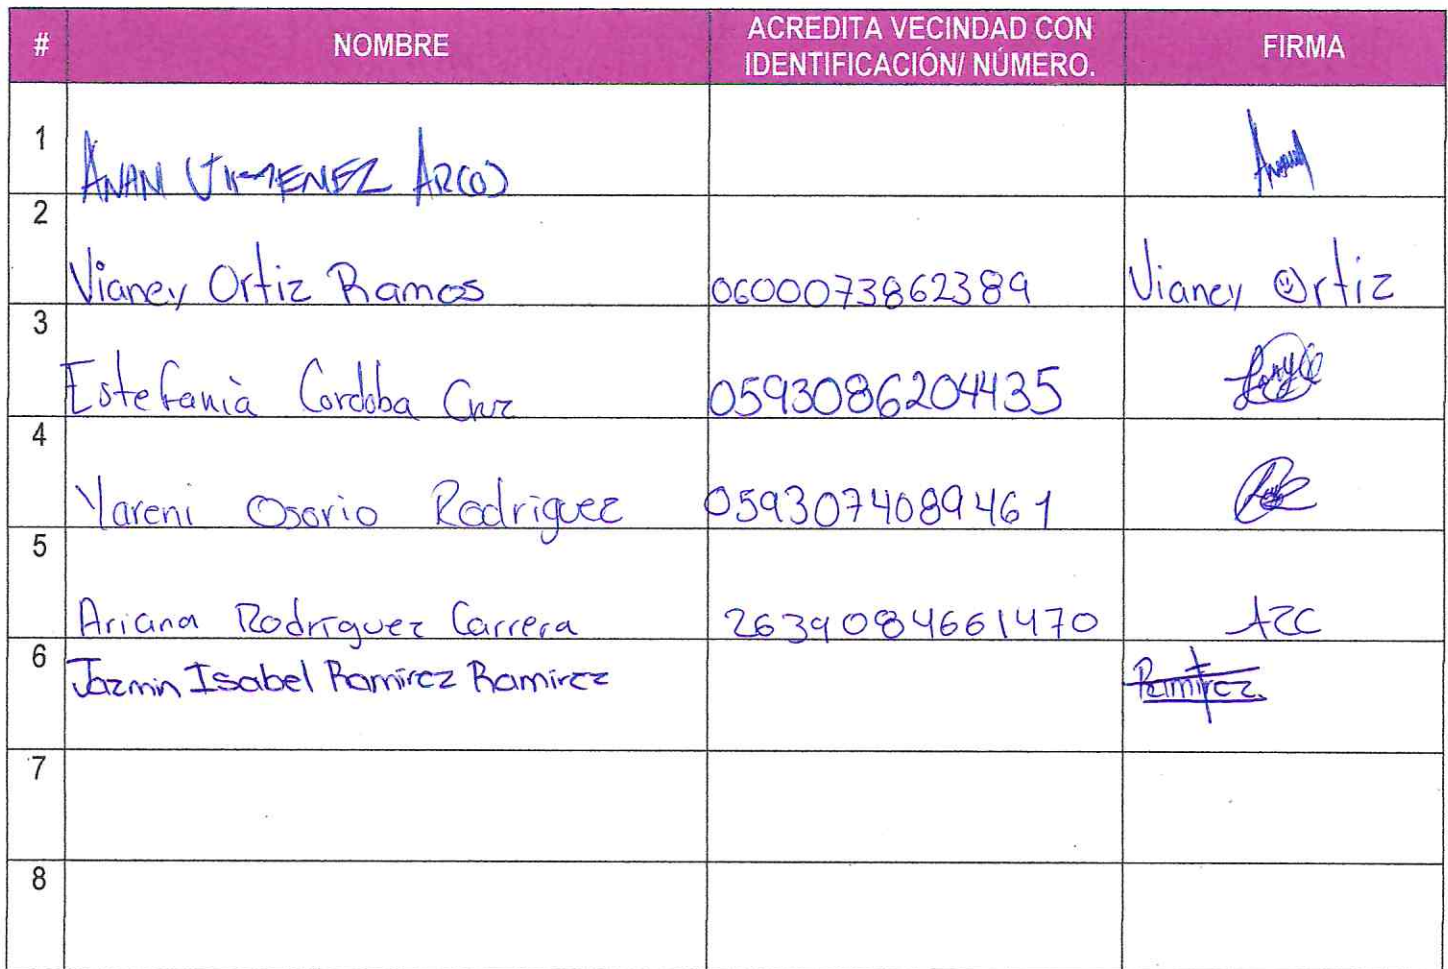 # NOMBRE ACREDITA VECINDAD CON IDENTIFICACIÓN/ NÚMERO. FIRMA
1 ANAN JIMENEZ
2 Vianey Ortiz Ramos 0600073862389 Vianey Ortiz
3 Estefanià Cordoba Cruz 0593086204435
4 Yareni Osorio Rodriguez 0593074089461
5 Ariana Rodriguez Carrera 2639084661470 ARC
6 Jazmin Isabel Ramirez Ramirez Ramirez
7
8